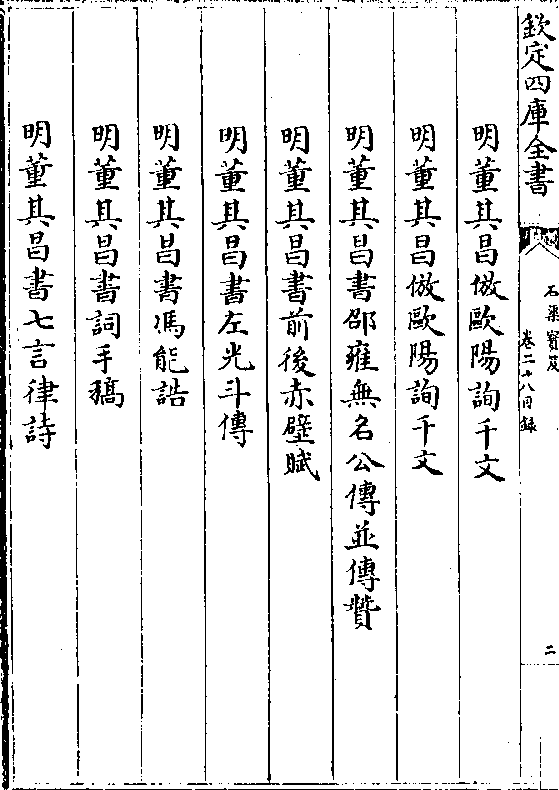 欽定四庫全書
石渠寶笈
卷二十八目錄
二
明董其昌倣歐陽詢千文
明董其昌倣歐陽詢千文
明董其昌書邵雍無名公傳並傳贊
明董其昌書前後赤壁賦
明董其昌書左光斗傳
明董其昌書馮能誥
明董其昌書詞手稿
明董其昌書七言律詩